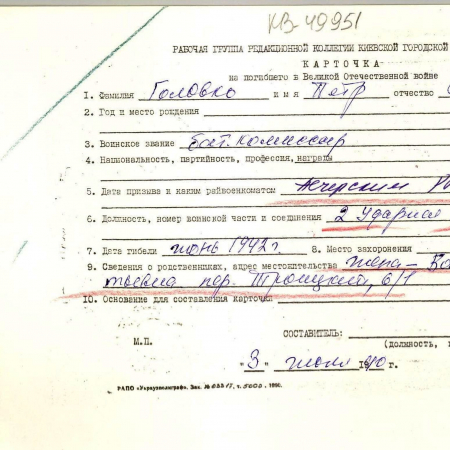 КВ-49951
РАБОЧАЯ ГРУППА РЕДАКЦИОННОЙ КОЛЛЕГИИ КИЕВСКОЙ ГОРОДСКОЙ
КАРТОЧКА
на погибшего в Великой Отечественной войне
1. Фамилия Головко имя Петр отчество
2. Год и место рождения
3. Воинское звание бат. комиссар
4. Национальность, партийность, профессия, награды
5. Дата призыва и каким райвоенкоматом
6. Должность, номер воинской части и соединения 2 Ударная
7. Дата гибели июнь 1942 г. 8. Место захоронения
9. Сведения о родственниках, адрес местожительства жена –
пер. Троицкий, 6/1
10. Основание для составления карточки
СОСТАВИТЕЛЬ:
(должность,
М.П.
"3" июля 1990 г.
РАПО «Укрвузполиграф». Зак. т. 5000. 1990.